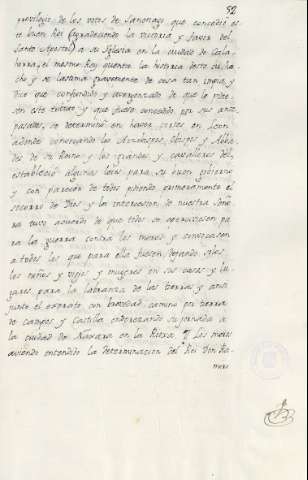 52
privilegio de los votos de Santiago que concedió es
te buen Rei (agradeciendo la vitoria y favor del
Santo Apostol) a su Iglesia en la ciudad de Cala
horra, el mesmo Rey quenta la historia deste su he
cho y se lastima gravemente de cosa tan
y
dice que confundido y avergonzado de que le
sen este tributo y que fuese concedido por sus ante
pasados, se determinó en hacer cortes en Leon
adonde convocando los Arzobispos, Obispos y Abba
des de su Reino y los grandes y caballeros del,
estableció algunas leies para su buen gobierno
y con parecer de todos pidiendo primeramente el
socorro de Dios y la intercesion de nuestra Seño
ra tuvo acuerdo de que todos se apercibiesen pa
ra la guerra contra los moros y convocasen
a todos los que para ella fuesen, dejando solos
los niños y viejos y mugeres en sus casas y lu
gares para la labranza de las tierras y ansi
junto el exercito con brevedad camino por tierra
de campos y Castilla enderezando su jornada a
la ciudad de Naxara en la Rioxa. Los moros
aviendo entendido la determinacion del Rei Don Ra
miro